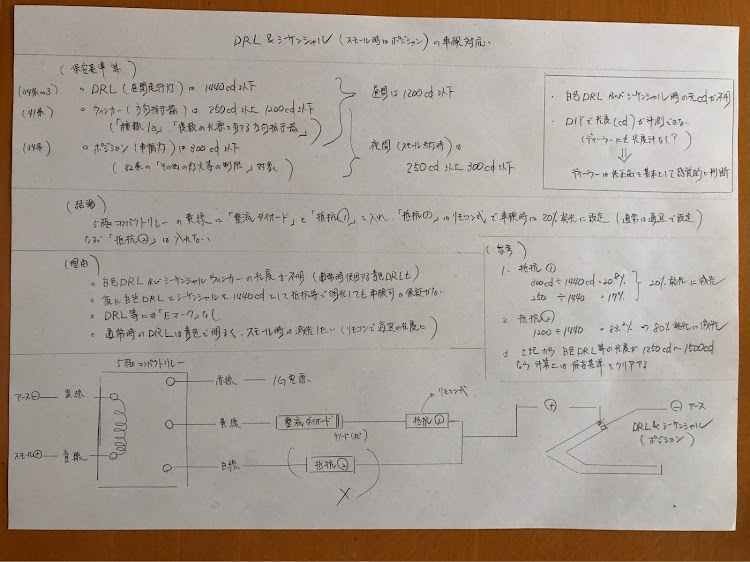 DRL & シーケンシャル (スモール時はポジション) の車検対応
(保安基準等)
DRL (昼間走行灯) は 1440cd以下
(41条) ○ ウィンカー (方向指示器) は 250cd以上 1200cd以下
ポジション (車幅灯) は 300cd以下
(42条の「その他の灯火等の制限」対象)
昼間は 1200cd以下
夜間 (スモール点灯時) は
250cd以上 300cd以下
・白色DRL及びシーケンシャル時の光cdが不明
・DIYで光度(cd)が計測できない
(ディーラーにも光度計なし?)
ディーラーは純正品を基本として感覚的に判断
(結論)
5極コンパクトリレーの黄線に「整流ダイオード」と「抵抗①」を入れ、「抵抗①」はリモコン式で車検時は20%減光に設定 (通常は適宜で設定)
なお「抵抗②」は入れない
(理由)
○ 白色DRL及びシーケンシャルウィンカーの光度が不明 (通常時使用する青色DRLも)
○ 仮に白色DRLとシーケンシャルを1440cdとして抵抗等で調光しても車検可の保証がない
○ DRL等には「Eマーク」なし
○ 通常時のDRLは青色で明るく、スモール時は減光したい (リモコンで適宜の光度に)
(参考)
1. 抵抗①
300cd ÷ 1440cd = 20.8%
250 ÷ 1440 = 17%
20%減光に減光
2. 抵抗②
1200 ÷ 1440 = 83.%
⇒ 80%減光に減光
3 上記から白色DRL等の光度が1250cd〜1500cd
なら計算上は保安基準をクリアする
5極コンパクトリレー
アース⊖ 黒線
スモール⊕ 青線
赤線 IG電源
黄線 整流ダイオード 抵抗①
リモコン式
白線 抵抗②
×
⊕
⊖ アース
DRL&シーケンシャル
(ポジション)